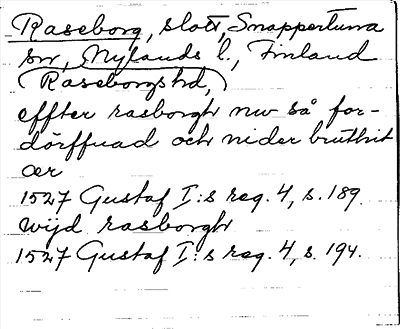 Raseborg, slott, Snappertuna
sn, Nylands l., Finland
(Raseborgs hd,)
effter rasborgh nw så for-
dörffuad och nider bruthit
ær
1527 Gustaf I:s reg. 4, s. 189.
wijd rasborgh
1527 Gustaf I:s reg. 4, s. 194.